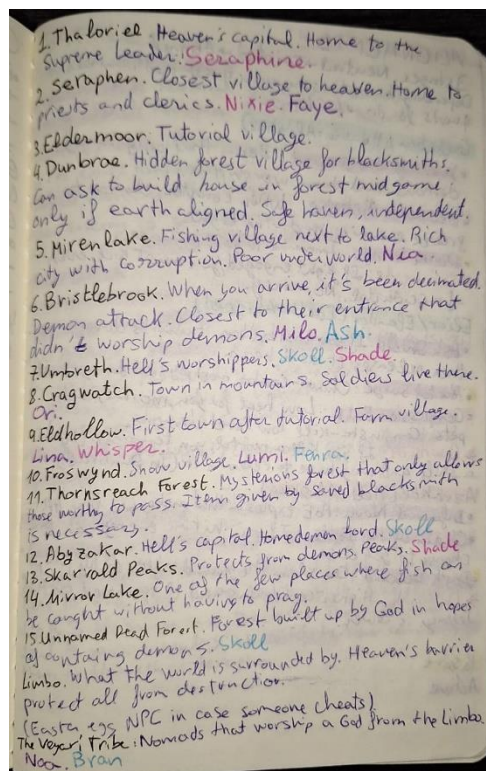 1. Thaloriel. Heaven's capital. Home to the
Supreme Leader. Seraphine.
2. Seraphen. Closest village to heaven. Home to
priests and clerics. Nixie. Faye.
3. Eldermoor. Tutorial village.
4. Dunbrae. Hidden forest village for blacksmiths.
Can ask to build house in forest midgame
only if earth aligned. Safe haven, independent.
5. Mirenlake. Fishing village next to lake. Rich
city with corruption. Poor underworld. Nia.
6. Bristlebrook. When you arrive, it's been decimated.
Demon attack. Closest to their entrance that
didn't worship demons. Milo. Ash.
7. Umbreth. Hell's worshippers. Skoll. Shade.
8. Cragwatch. Town in mountains. Soldiers live there.
Ori.
9. Eldhollow. First town after tutorial. Farm village.
Lina. Whisper.
10. Froswynd. Snow village. Lumi. Fenra.
11. Thornsreach Forest. Mysterious forest that only allows
those worthy to pass. Item given by saved blacksmith
is necessary.
12. Abyzakar. Hell's capital. Home demon Lord. Skoll
13. Skarvald Peaks. Protects from demons. Peaks. Shade
14. Mirror Lake. One of the few places where fish can
be caught without having to pray.
15. Unnamed Dead Forest. Forest built up by God in hopes
of containg demons. Skoll
Limbo. What the world is surrounded by. Heaven's barrier
protect all from destruction.
(Easter egg NPC in case someone cheats)
The Veyari Tribe: Nomads that worship a God from the Limbo.
Noa. Bran